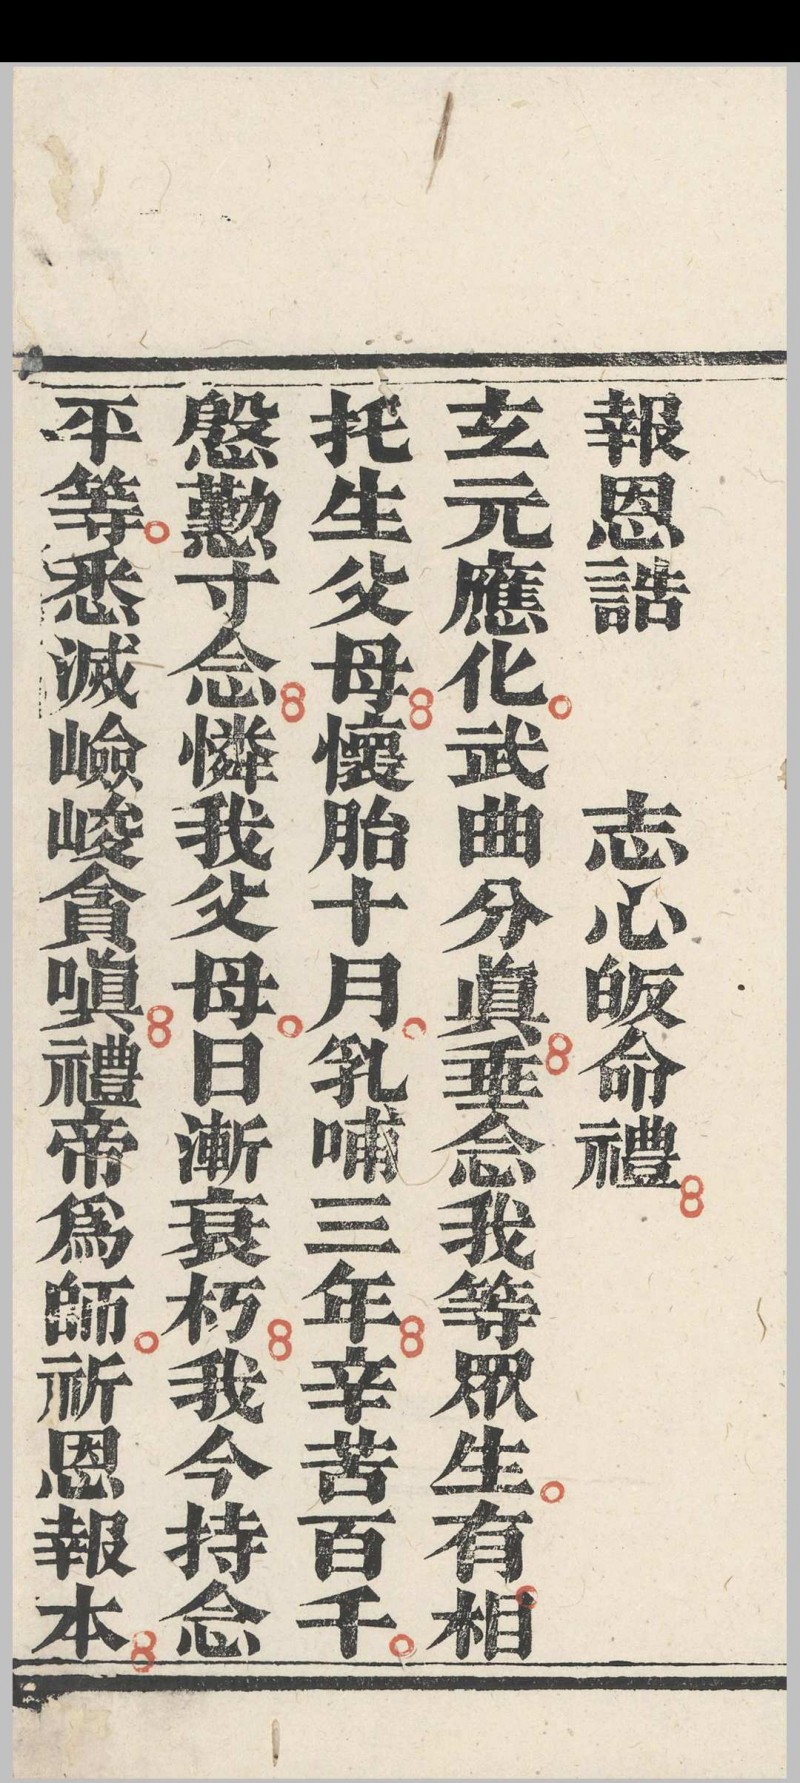 報恩誥　志心皈命禮
玄元應化武曲分眞垂念我等眾生有相
托生父母懷胎十月乳哺三年辛苦百千
慇懃寸念憐我父母日漸衰朽我今持念
平等悉滅嶮峻貪嗔禮帝為師祈恩報本